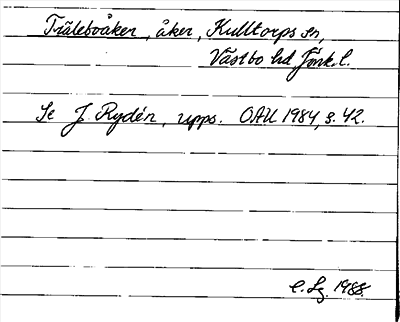 Träleboåker, åker, Kulltorps sn,
Västbo hd Jönk.l.
Se J. Rydén, upps. OAU 1984, s. 42.
C. Lg. 1988